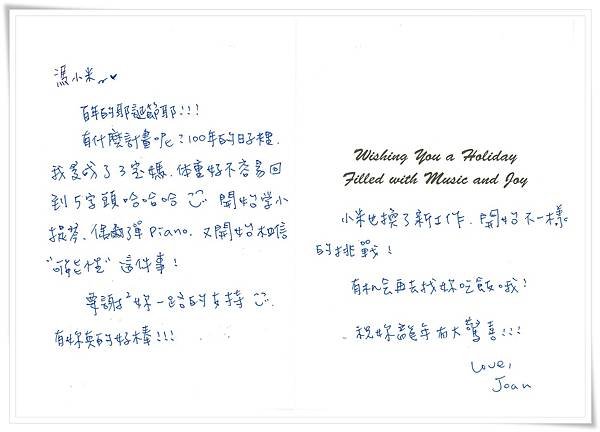 馮小米~♥
百年的耶誕節耶!!!
有什麼計畫呢?100年的日子裡,
我變成了3寶媽,体重好不容易回
到5字頭哈哈哈 開始學小
提琴、偶爾彈Piano,又開始相信
"可能性"這件事!
要謝謝妳一路的支持
有妳真的好棒!!!
Wishing You a Holiday
Filled with Music and Joy
小米也換了新工作,開始不一樣
的挑戰!
有机会再去找妳吃飯哦!
祝妳龍年有大驚喜!!!
Love,
Joan